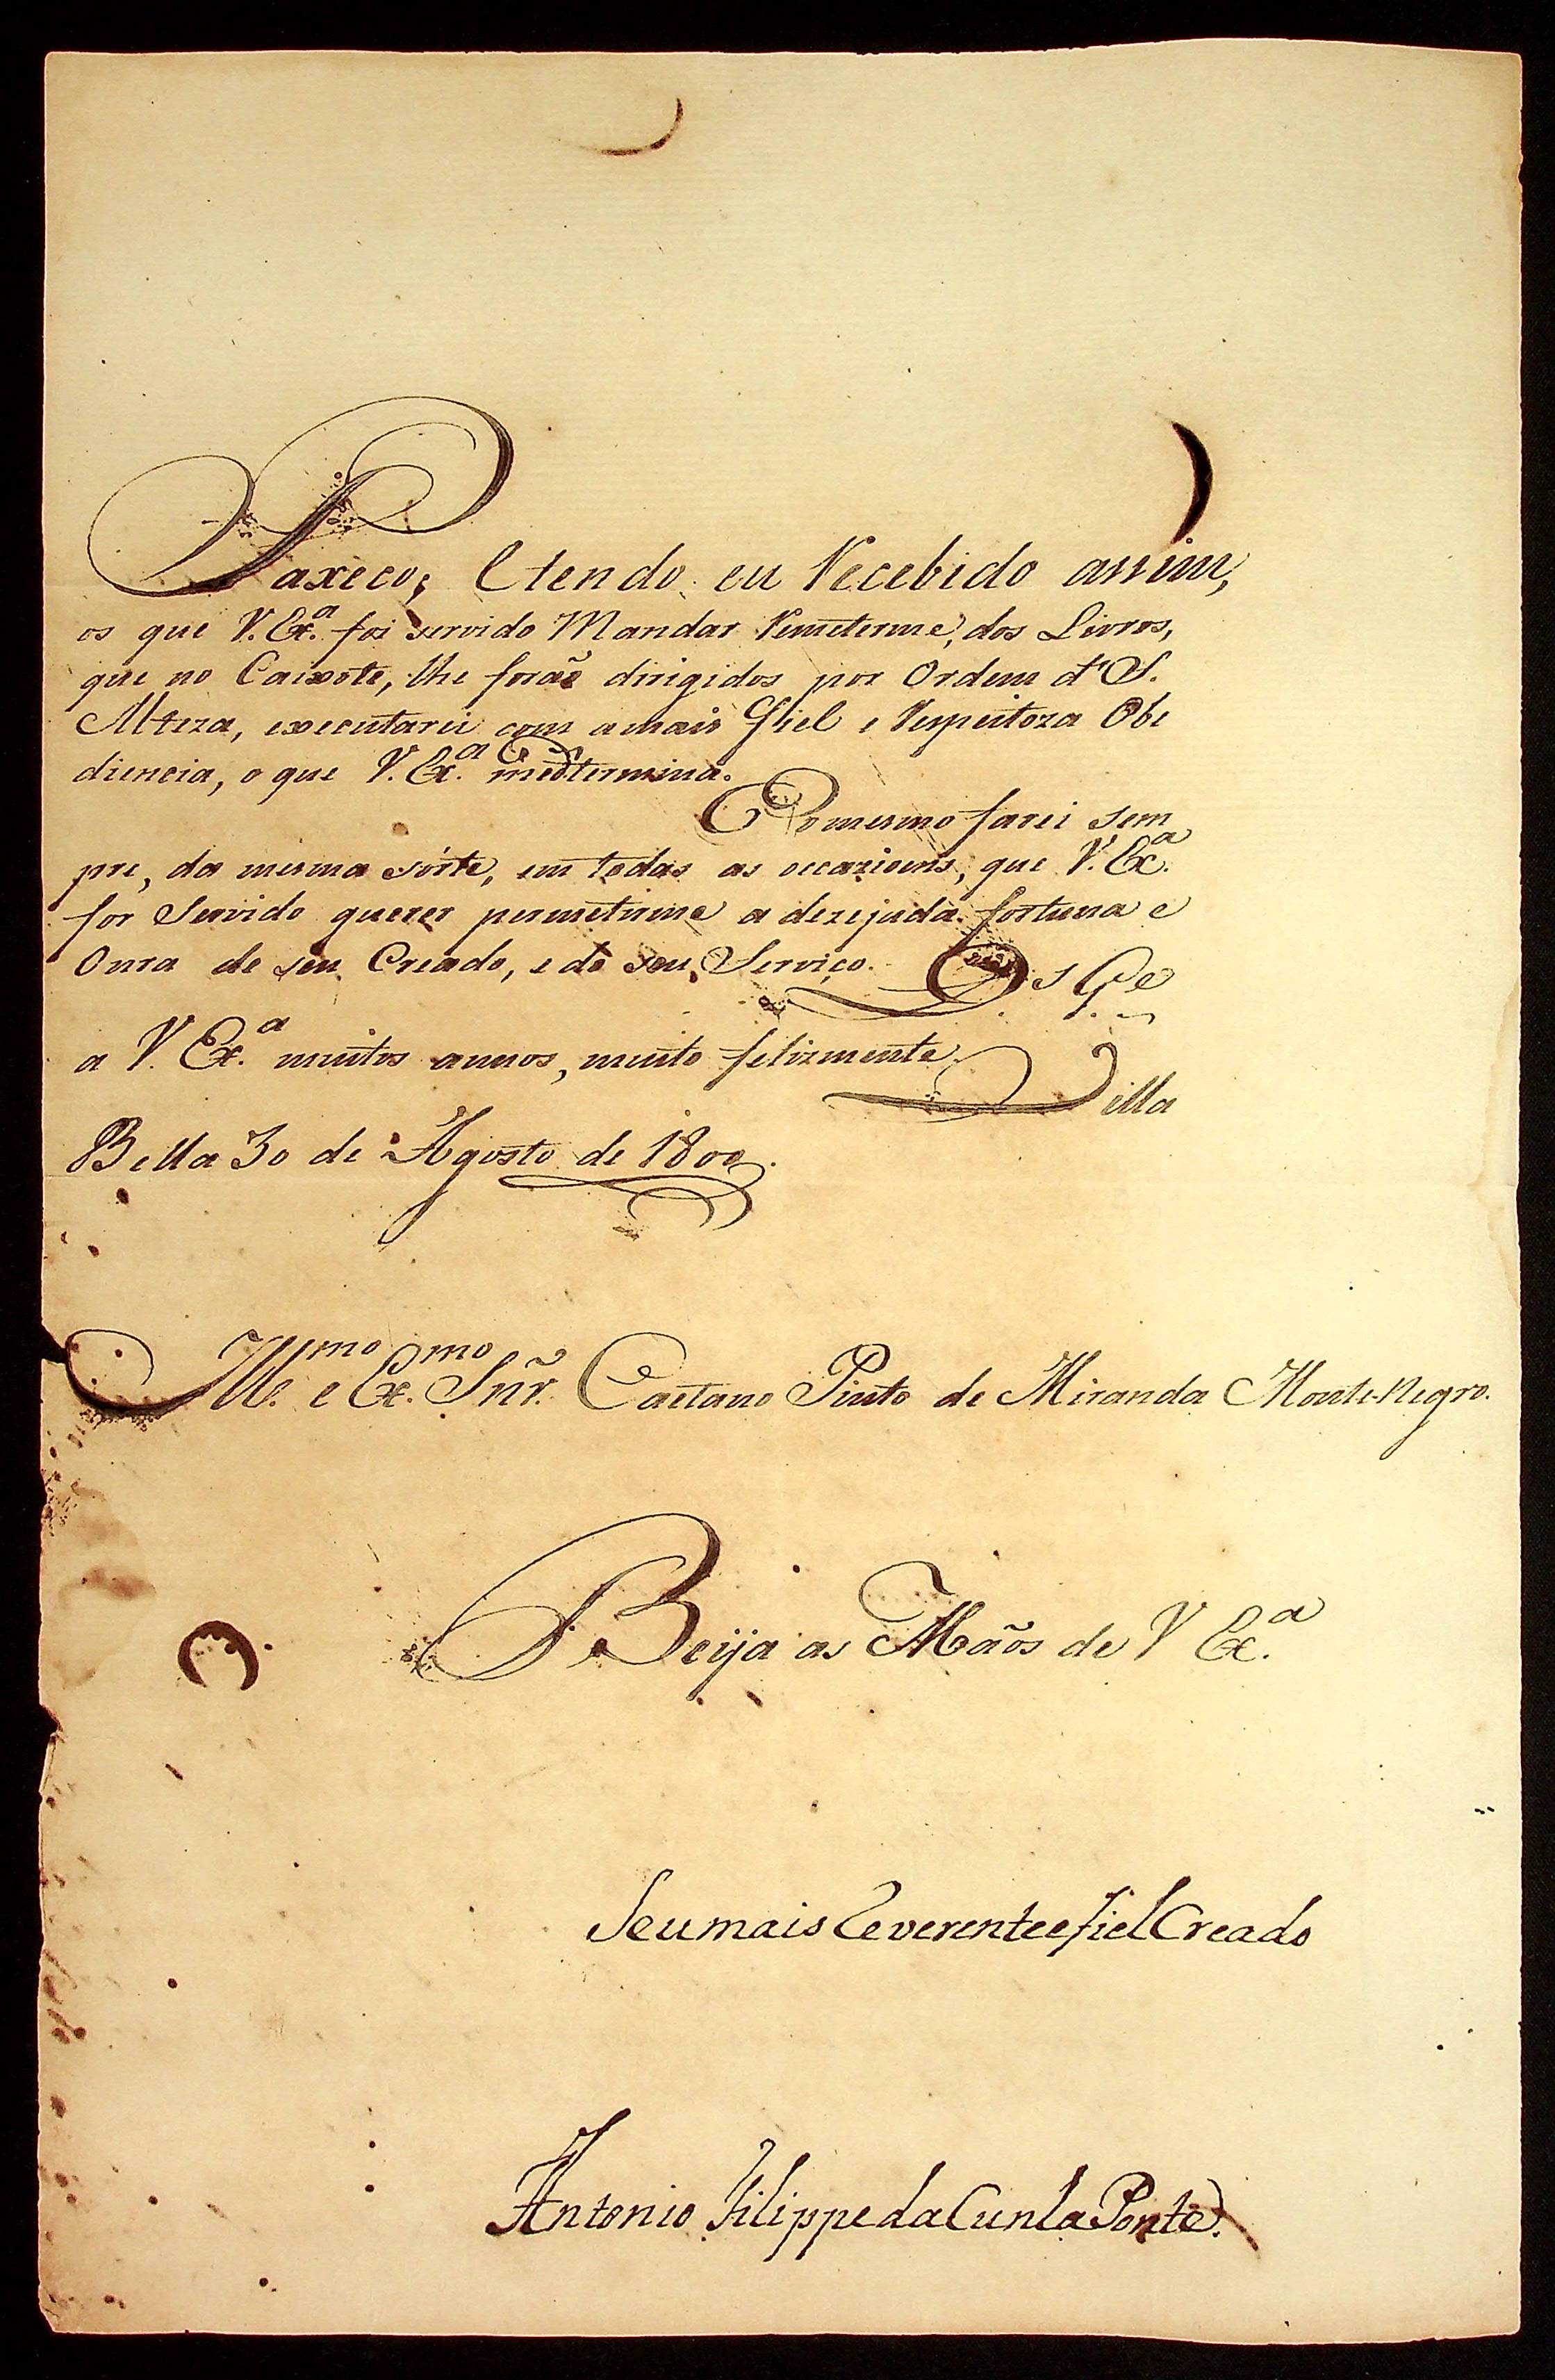 Paxeco; E tendo eu Recebido assim,
os que V. Ex.ª foi servido Mandar Remeterme, dos Livros,
que no Caixote, lhe forão dirigidos por Ordem d' S.
Alteza, executarei com amais fiel e Respeitoza Obe
diencia, o que V. Ex.ª medtermina.
O mesmo farei sem
pre, da mesma sórte, em todas as occazioens, que V. Ex.ª
for Servido querer permetirme a dezejada fortuna e
Onra de seu Creado, e do seu Serviço. Ds Ge
a V. Ex.ª muitos annos, muito felizmente. Villa
Bella 30 de Agosto de 1800.
Ill.mo e Ex.mo Snr. Caetano Pinto de Miranda Monte-Negro.
Beija as Mãos de V Ex.ª
Seu mais Reverente e fiel Creado
Antonio Filippe da Cunha Ponte.